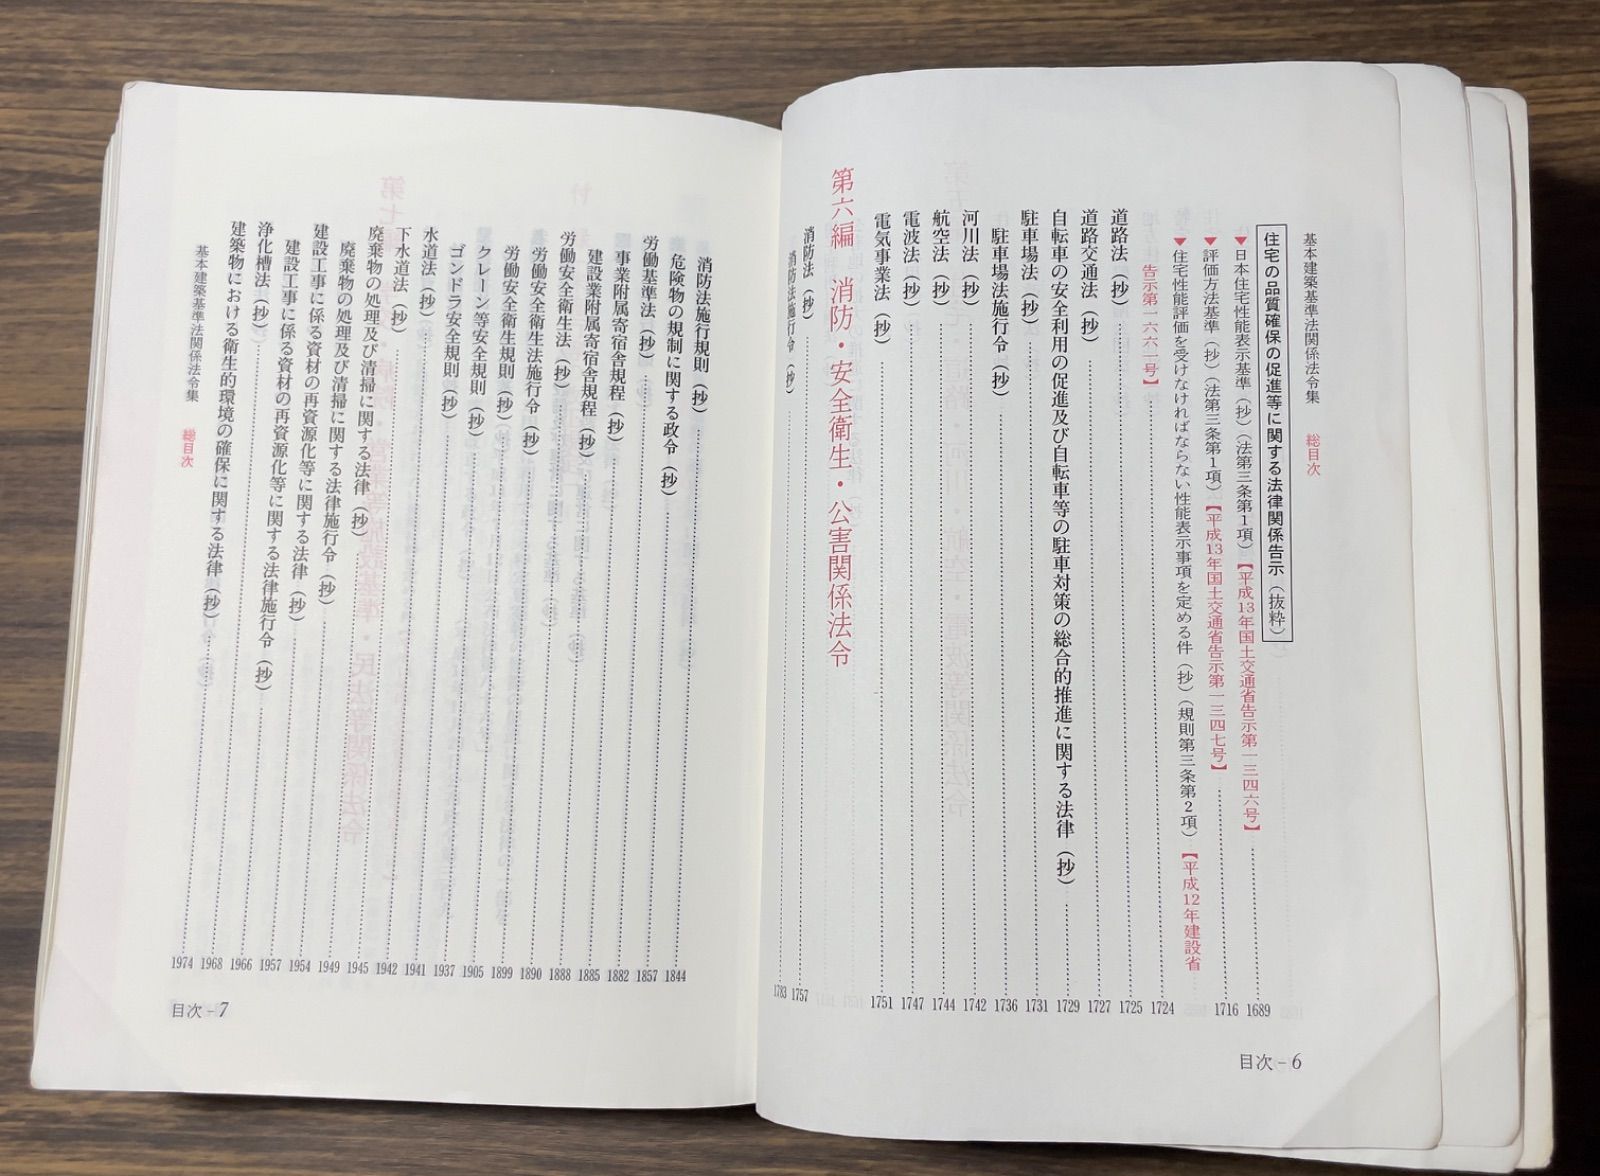 基本建築基準法関係法令集　総目次
住宅の品質確保の促進等に関する法律関係告示（抜粋）
▼日本住宅性能表示基準（抄）（法第三条第1項）【平成13年国土交通省告示第一三四六号】 1689
▼評価方法基準（抄）（法第三条第1項）【平成13年国土交通省告示第一三四七号】 1716
▼住宅性能評価を受けなければならない性能表示事項を定める件（抄）（規則第三条第2項）【平成12年建設省
告示第一六六一号】 1724
道路法（抄） 1725
道路交通法（抄） 1727
自転車の安全利用の促進及び自転車等の駐車対策の総合的推進に関する法律（抄） 1729
駐車場法（抄） 1731
駐車場法施行令（抄） 1736
河川法（抄） 1742
航空法（抄） 1744
電波法（抄） 1747
電気事業法（抄） 1751
第六編　消防・安全衛生・公害関係法令
消防法（抄） 1757
消防法施行令（抄） 1783
目次－6
消防法施行規則（抄） 1844
危険物の規制に関する政令（抄） 1857
労働基準法（抄） 1882
事業附属寄宿舎規程（抄） 1885
建設業附属寄宿舎規程（抄） 1888
労働安全衛生法（抄） 1890
労働安全衛生法施行令（抄） 1899
労働安全衛生規則（抄） 1905
クレーン等安全規則（抄） 1937
ゴンドラ安全規則（抄） 1941
水道法（抄） 1942
下水道法（抄） 1945
廃棄物の処理及び清掃に関する法律（抄） 1949
廃棄物の処理及び清掃に関する法律施行令（抄） 1954
建設工事に係る資材の再資源化等に関する法律（抄） 1957
建設工事に係る資材の再資源化等に関する法律施行令（抄） 1966
浄化槽法（抄） 1968
建築物における衛生的環境の確保に関する法律（抄） 1974
基本建築基準法関係法令集　総目次
目次－7